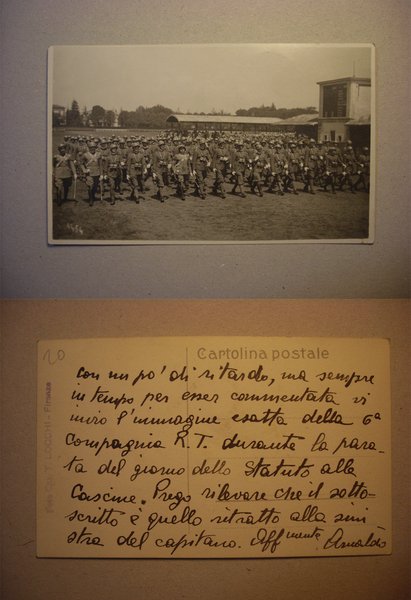 20
Cartolina postale
con un po' di ritardo, ma sempre
in tempo per esser commentata vi
invio l'immagine esatta della 6a
Compagnia R.T. durante la para-
ta del giorno dello Statuto alle
Cascine. Prego rilevare che il sotto-
scritto è quello ritratto alla sini
stra del capitano. Affmente Arnaldo
LOCCHI - Firenze